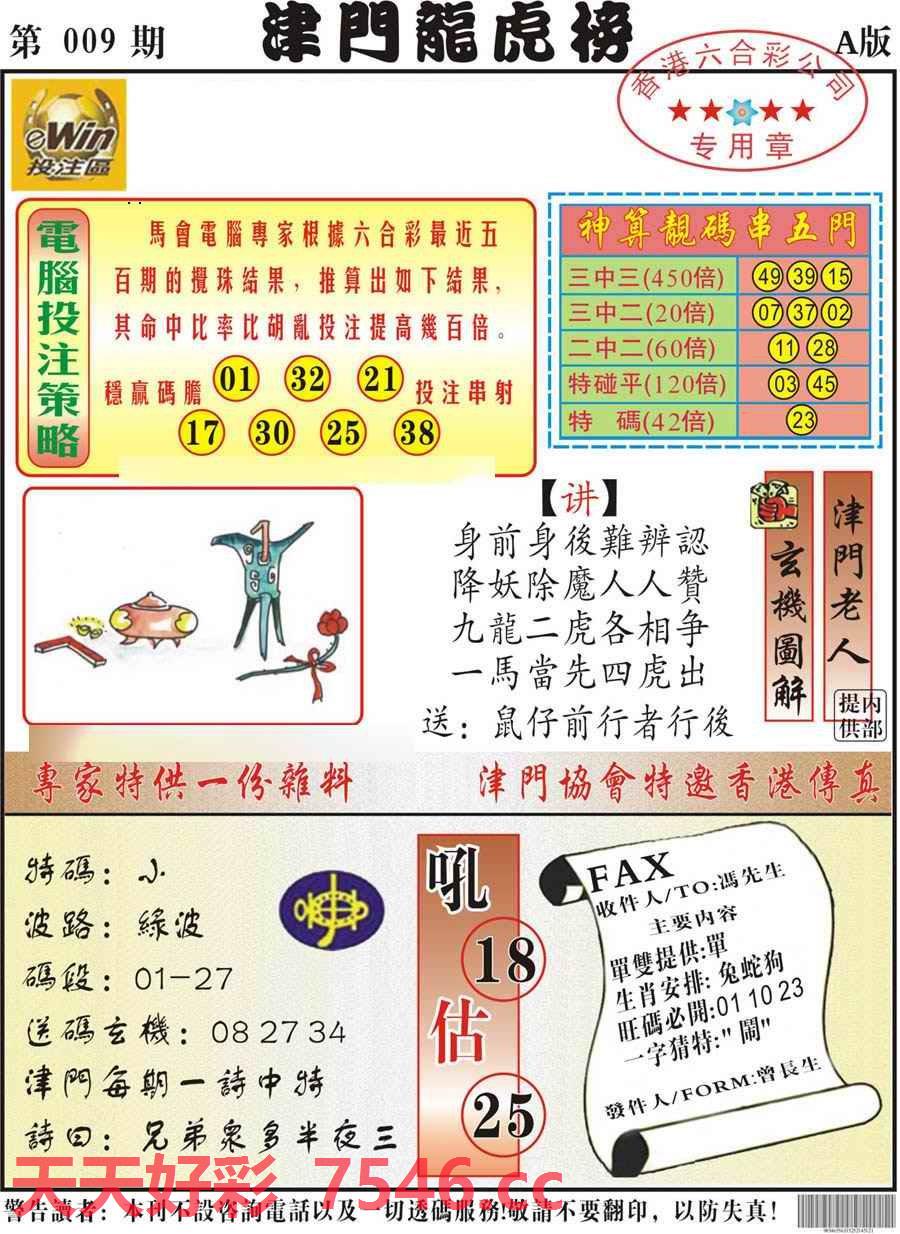 第 009 期
津門龍虎榜
A版
香港六合彩公司
专用章
eWin
投注區
電腦投注策略
馬會電腦專家根據六合彩最近五
百期的攪珠結果，推算出如下結果，
其命中比率比胡亂投注提高幾百倍。
穩贏碼膽 01 32 21 投注串射
17 30 25 38
神算靚碼串五門
三中三(450倍) 49 39 15
三中二(20倍) 07 37 02
二中二(60倍) 11 28
特碰平(120倍) 03 45
特 碼(42倍) 23
1
【讲】
身前身後難辨認
降妖除魔人人贊
九龍二虎各相爭
一馬當先四虎出
送：鼠仔前行者行後
玄機圖解
津門老人
内部提供
專家特供一份雜料
津門協會特邀香港傳真
特碼：小
波路：綠波
碼段：01-27
送碼玄機：08 27 34
津門每期一詩中特
詩曰：兄弟衆多半夜三
吼
18
估
25
FAX
收件人/TO:馮先生
主要内容
單雙提供:單
生肖安排: 兔蛇狗
旺碼必開:01 10 23
一字猜特:"鬧"
發件人/FORM:曾長生
天天好彩 7546.cc
警告讀者：本刊不設咨詢電話以及一切透碼服務!敬請不要翻印，以防失真!